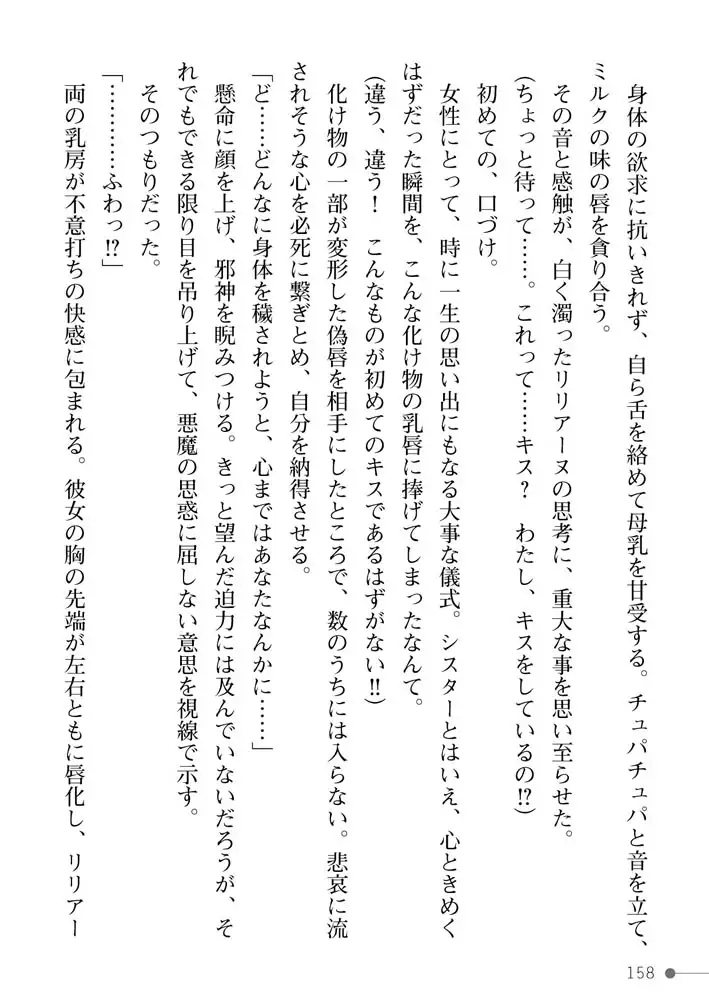 身体の欲求に抗いきれず、自ら舌を絡めて母乳を甘受する。チュパチュパと音を立て、
ミルクの味の唇を貪り合う。
その音と感触が、白く濁ったリリアーヌの思考に、重大な事を思い至らせた。
(ちょっと待って……。これって……キス？　わたし、キスをしているの!?)
初めての、口づけ。
女性にとって、時に一生の思い出にもなる大事な儀式。シスターとはいえ、心ときめく
はずだった瞬間を、こんな化け物の乳唇に捧げてしまったなんて。
(違う、違う！　こんなものが初めてのキスであるはずがない!!)
化け物の一部が変形した偽唇を相手にしたところで、数のうちには入らない。悲哀に流
されそうな心を必死に繋ぎとめ、自分を納得させる。
「ど……どんなに身体を穢されようと、心まではあなたなんかに……」
懸命に顔を上げ、邪神を睨みつける。きっと望んだ迫力には及んでいないだろうが、そ
れでもできる限り目を吊り上げて、悪魔の思惑に屈しない意思を視線で示す。
そのつもりだった。
「…………ふわっ!?」
両の乳房が不意打ちの快感に包まれる。彼女の胸の先端が左右ともに唇化し、リリアー
158